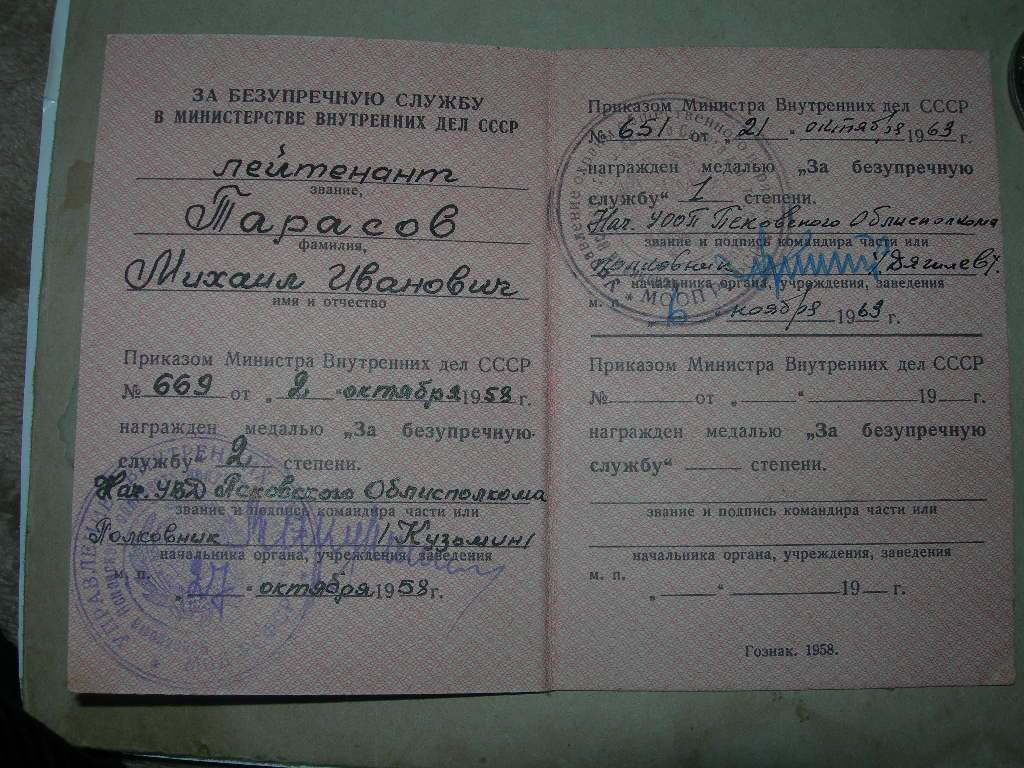 ЗА БЕЗУПРЕЧНУЮ СЛУЖБУ
В МИНИСТЕРСТВЕ ВНУТРЕННИХ ДЕЛ СССР
лейтенант
звание,
Тарасов
фамилия,
Михаил Иванович
имя и отчество
Приказом Министра Внутренних дел СССР
№ 669 от „2" октября 1958 г.
награжден медалью „За безупречную
службу“ 2 степени.
Нач. УВД Псковского Облисполкома
звание и подпись командира части или
Полковник /Кузьмин/
начальника органа, учреждения, заведения
м. п.
„27" октября 1958 г.
Приказом Министра Внутренних дел СССР
№ 651 от „21" октября 1963 г.
награжден медалью „За безупречную
службу“ 1 степени.
Нач. УООП Псковского Облисполкома
звание и подпись командира части или
Полковник /Дягилев/.
начальника органа, учреждения, заведения
м. п.
„6" ноября 1963 г.
Приказом Министра Внутренних дел СССР
№ от „ “ 19 г.
награжден медалью „За безупречную
службу“ степени.
звание и подпись командира части или
начальника органа, учреждения, заведения
м. п.
„ “ 19 г.
Гознак. 1958.